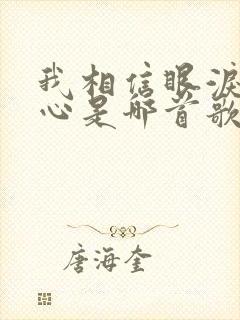 我相信眼泪
心是哪首歌
唐海奎